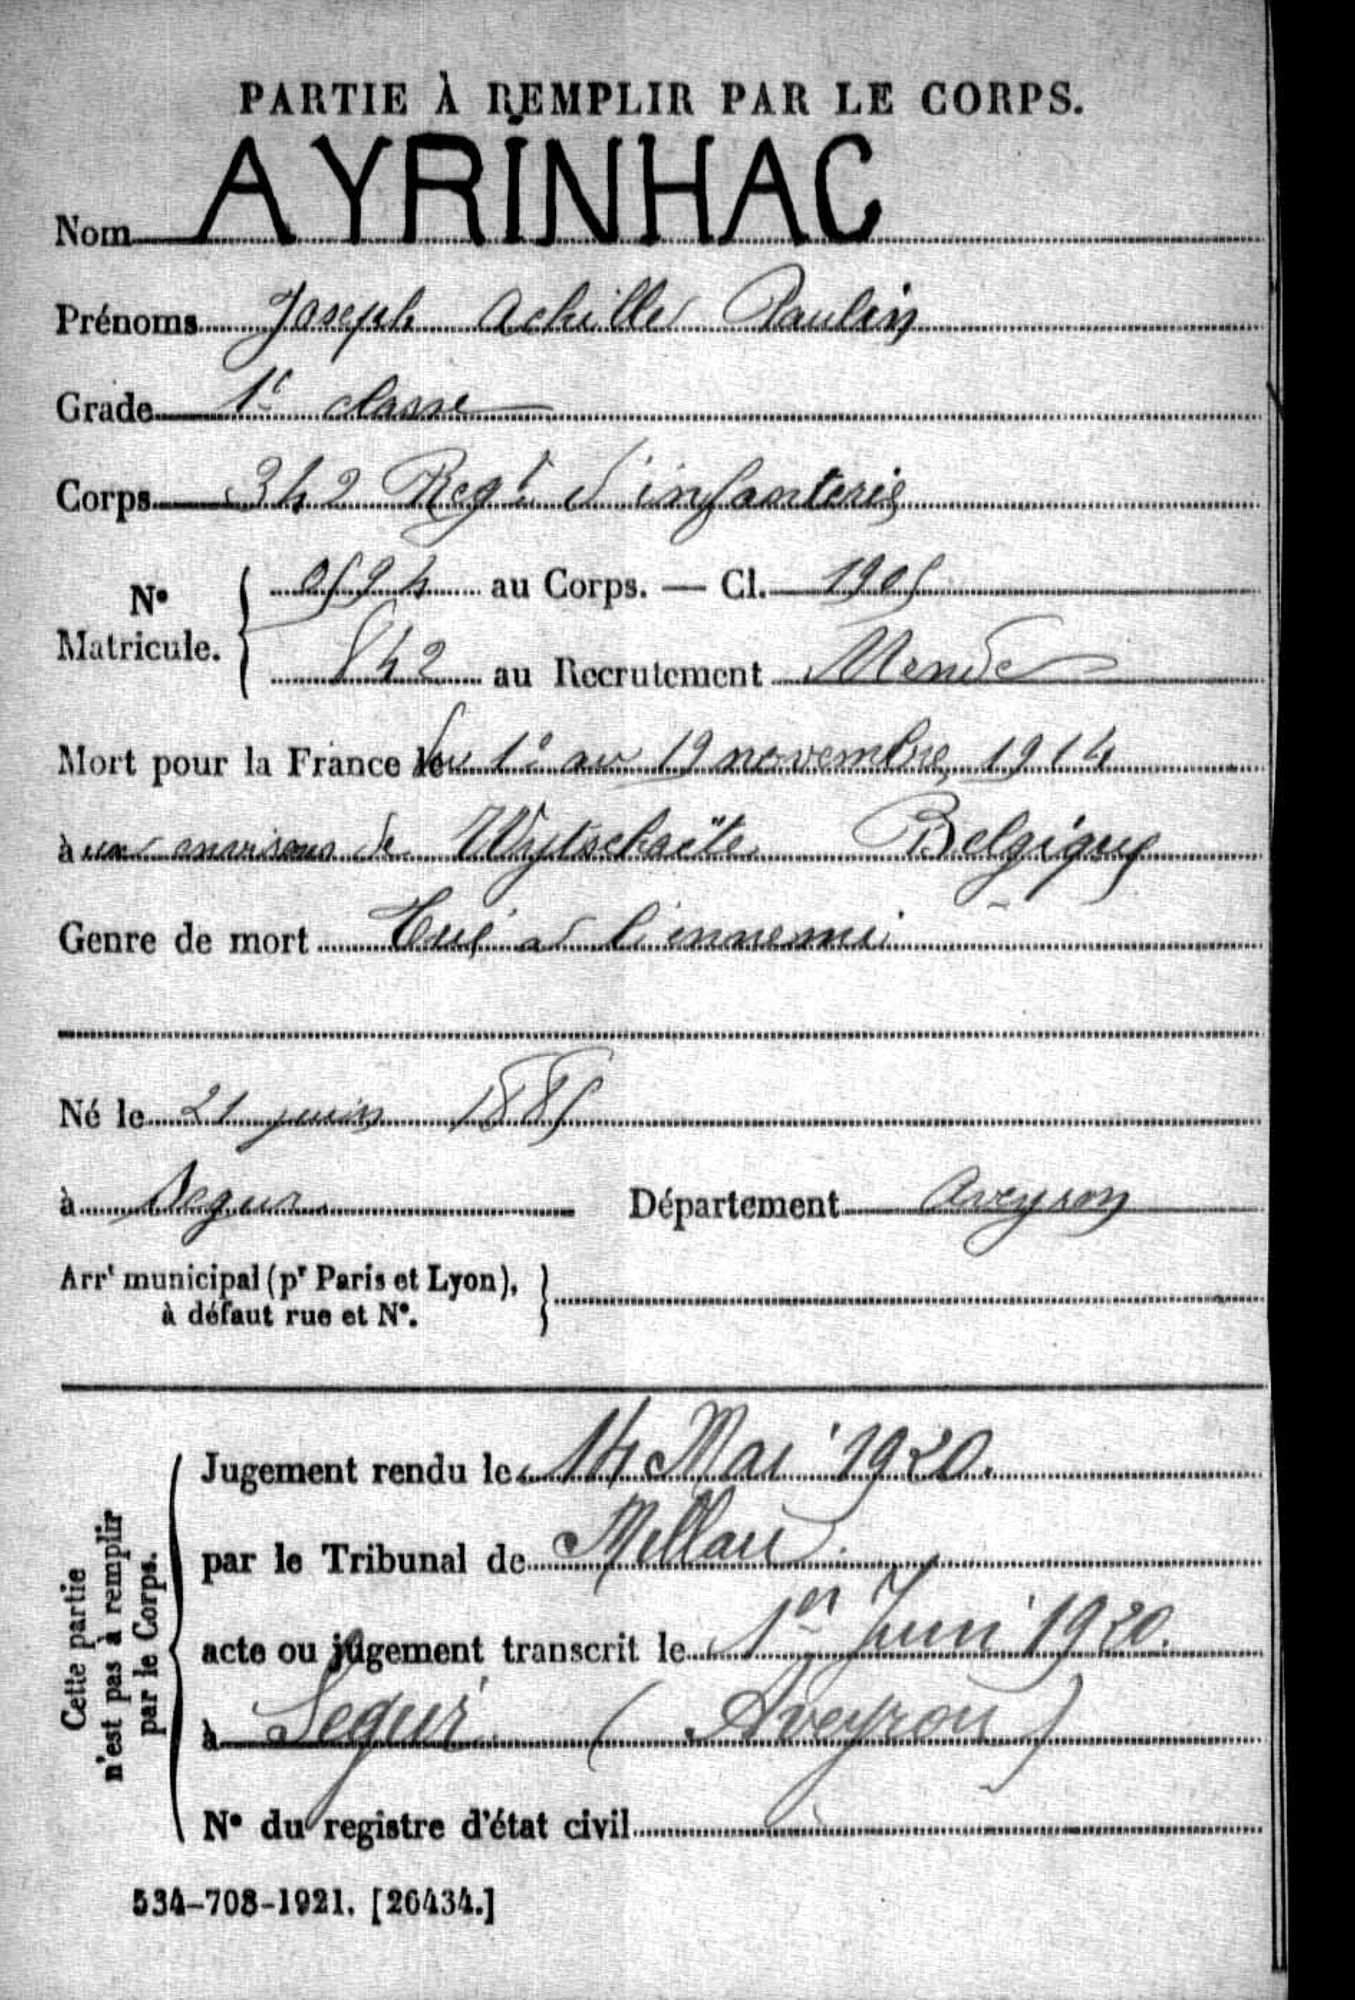 PARTIE À REMPLIR PAR LE CORPS.
Nom AYRINHAC
Prénoms Joseph Achille Paulin
Grade 1e classe
Corps 342 Regt d'infanterie
N° Matricule. { 0594 au Corps. — Cl. 1905
842 au Recrutement Mende
Mort pour la France du 1e au 19 novembre 1914
à aux environs de Wytschaëte Belgique
Genre de mort Tué à l'ennemi
Né le 21 juin 1885
à Segur Département Aveyron
Arrt municipal (pr Paris et Lyon), }
à défaut rue et N°.
Cette partie n'est pas à remplir par le Corps.
Jugement rendu le 14 Mai 1920.
par le Tribunal de Millau.
acte ou jugement transcrit le 1er Juin 1920.
à Segur (Aveyron)
N° du registre d'état civil
534-708-1921. [26434.]